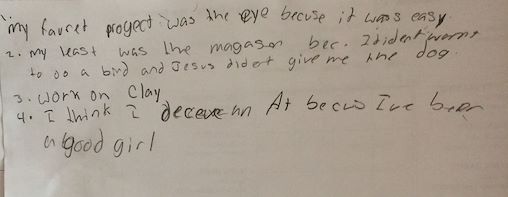 1. my favret progect was the eye becuse it wass easy.
2. my least was the magasen bec. I dident wornt
to do a bird and Jesus didet give me the dog.
3. work on clay
4. I think I deceve an At becus Ive been
a good girl